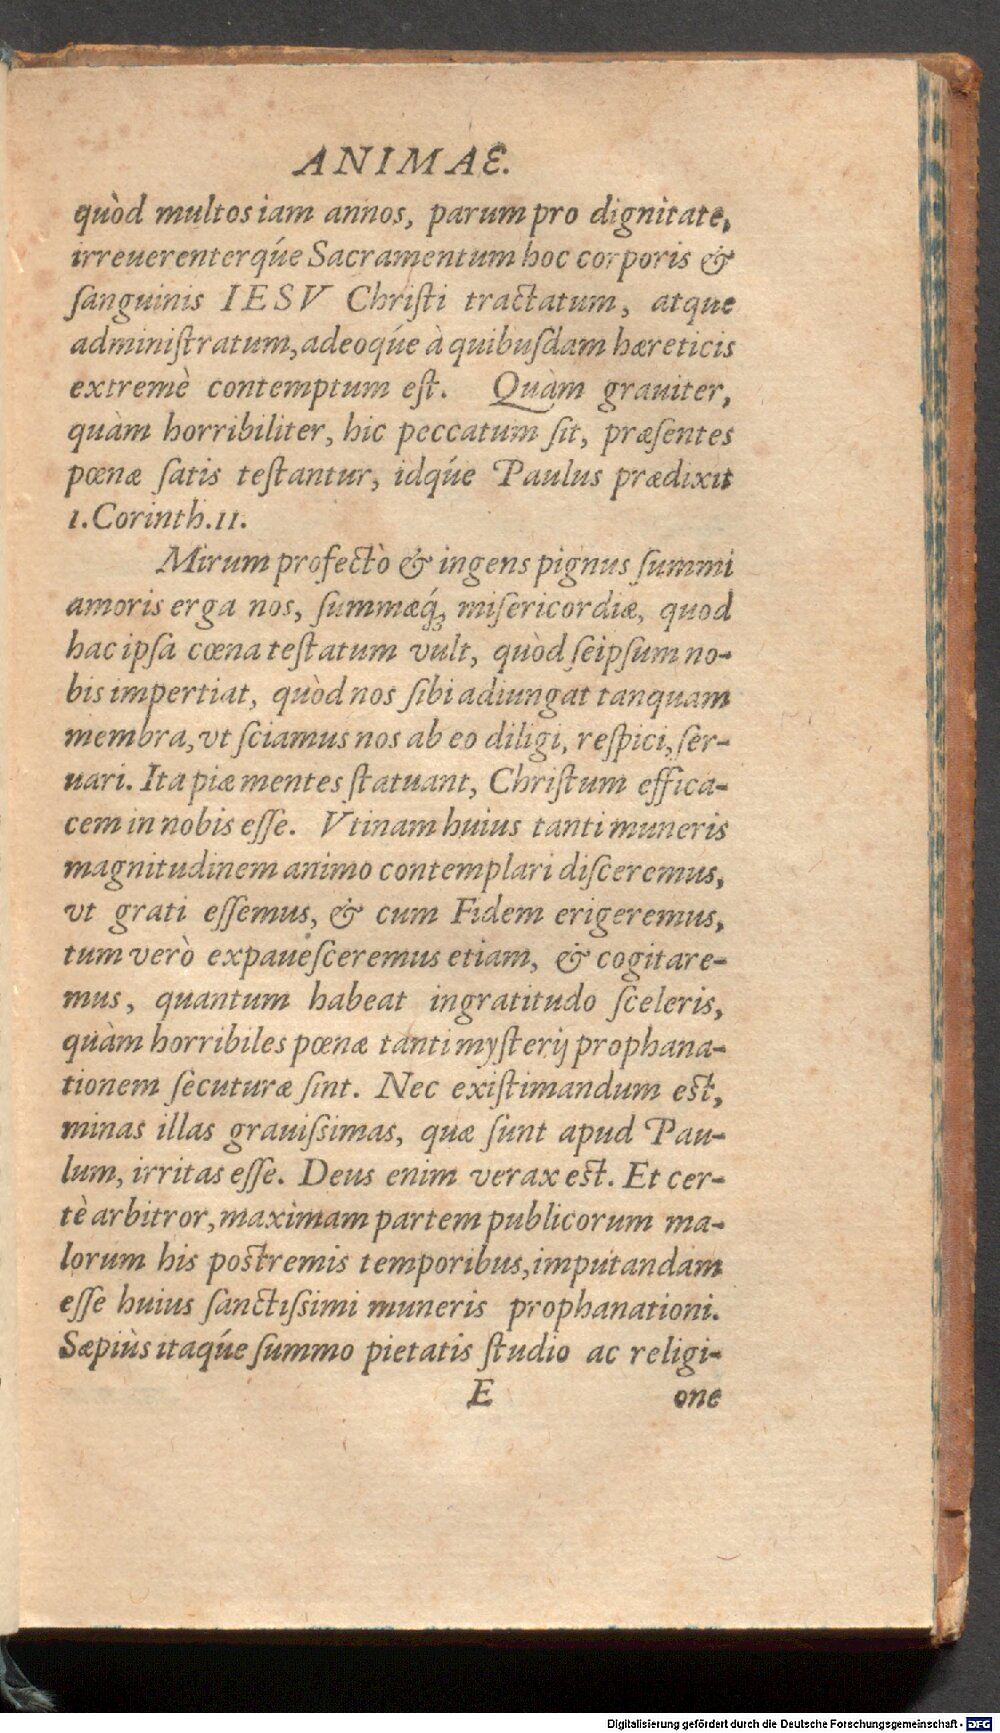 ANIMAE.
quòd multos iam annos, parum pro dignitate,
irreuerenterq́ue Sacramentum hoc corporis &
ſanguinis IESV Chriſti tractatum, atque
adminiſtratum, adeoq́ue à quibuſdam hæreticis
extremè contemptum eſt. Quàm grauiter,
quàm horribiliter, hic peccatum ſit, præſentes
pœnæ ſatis teſtantur, idq́ue Paulus prædixit
1. Corinth. 11.
Mirum profectò & ingens pignus ſummi
amoris erga nos, ſummæq́ꝫ miſericordiæ, quod
hac ipſa cœna teſtatum vult, quòd ſeipſum no-
bis impertiat, quòd nos ſibi adiungat tanquam
membra, vt ſciamus nos ab eo diligi, reſpici, ſer-
uari. Ita piæ mentes ſtatuant, Chriſtum effica-
cem in nobis eſſe. Vtinam huius tanti muneris
magnitudinem animo contemplari diſceremus,
vt grati eſſemus, & cum Fidem erigeremus,
tum verò expaueſceremus etiam, & cogitare-
mus, quantum habeat ingratitudo ſceleris,
quàm horribiles pœnæ tanti myſterij prophana-
tionem ſecuturæ ſint. Nec exiſtimandum eſt,
minas illas grauiſsimas, quæ ſunt apud Pau-
lum, irritas eſſe. Deus enim verax eſt. Et cer-
tè arbitror, maximam partem publicorum ma-
lorum his poſtremis temporibus, imputandam
eſſe huius ſanctiſsimi muneris prophanationi.
Sæpiùs itaq́ue ſummo pietatis ſtudio ac religi-
E one
Digitalisierung gefördert durch die Deutsche Forschungsgemeinschaft - DFG